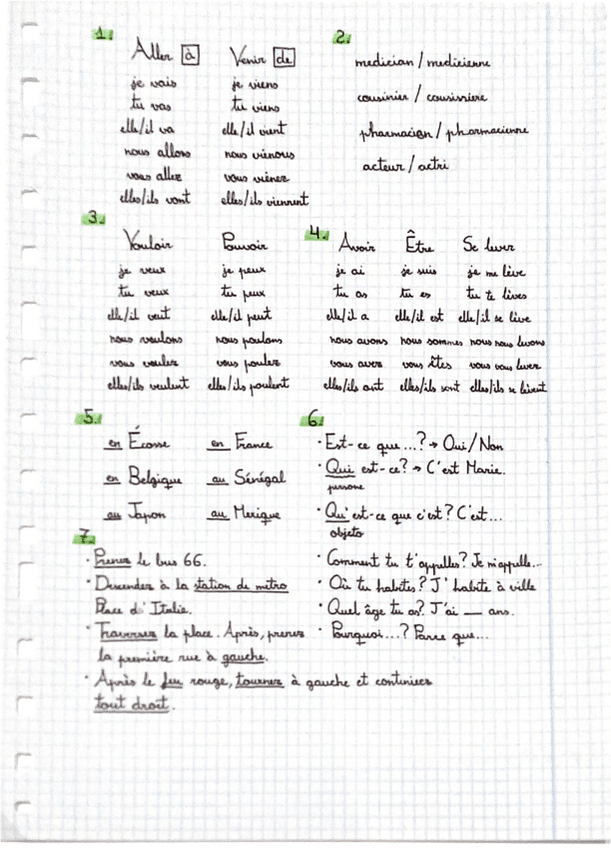 1.
Aller à
je vais
tu vas
elle/il va
nous allons
vous allez
elles/ils vont
Venir de
je viens
tu viens
elle/il vient
nous viénous
vous viénez
elles/ils viennent
2.
medician / medicienne
cousinier / cousissiere
pharmacien / pharmacienne
acteur / actri
3.
Vouloir
je veux
tu veux
elle/il veut
nous voulons
vous voulez
elles/ils veulent
Pouvoir
je peux
tu peux
elle/il peut
nous poulons
vous poulez
elles/ils poulent
4.
Avoir
je ai
tu as
elle/il a
nous avons
vous avez
elles/ils ont
Être
je suis
tu es
elle/il est
nous sommes
vous êtes
elles/ils sont
Se lever
je me lève
tu te lèves
elle/il se lève
nous nous levons
vous vous levez
elles/ils se lèvent
5.
en Écosse
en France
en Belgique
au Sénégal
au Japon
au Mexique
6.
· Est-ce que...? → Oui/Non
· Qui est-ce? → C'est Marie.
persone
· Qu'est-ce que c'est? C'est...
objeto
· Comment tu t'appelles? Je m'appelle...
· Où tu habites? J'habite à ville
· Quel âge tu as? J'ai __ ans.
· Pourquoi...? Parce que...
7.
· Prenez le bus 66.
· Descendez à la station de métro
Place d'Italie.
· Traversez la place. Après, prenez
la première rue à gauche.
· Après le feu rouge, tournez à gauche et continuez
tout droit.